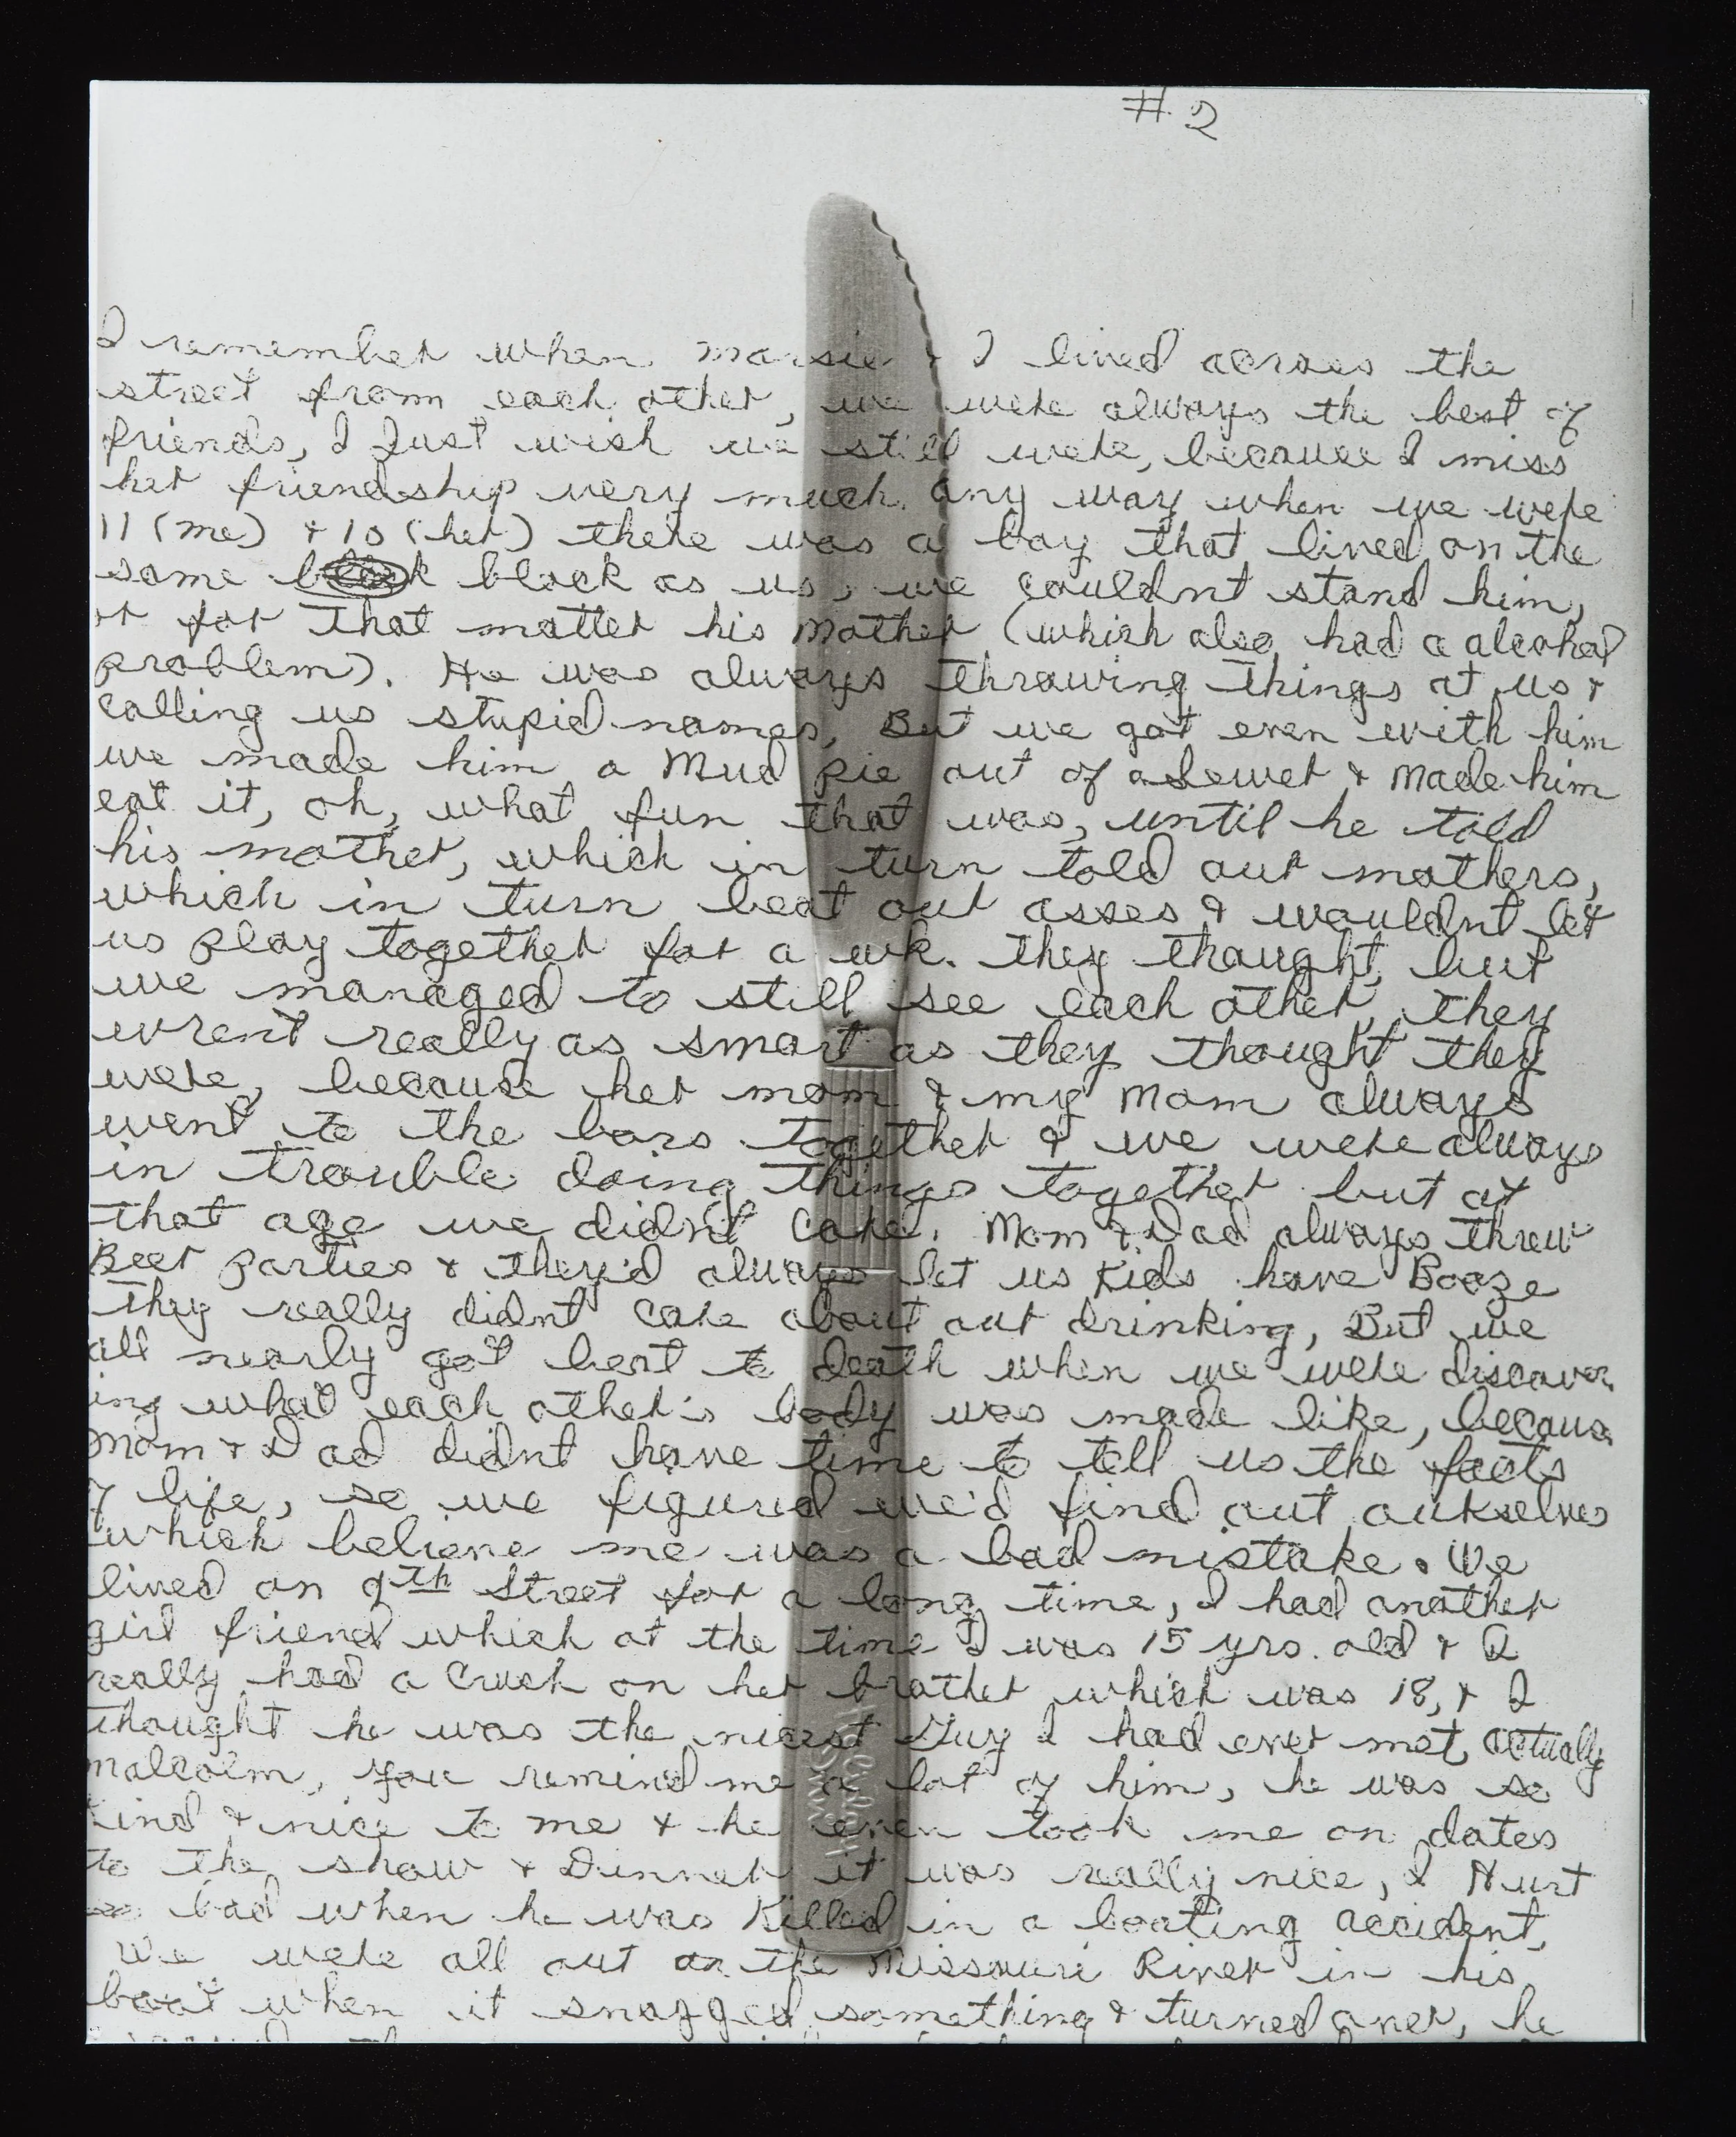 #2
I remember when marsie & I lived across the
street from each other, we were always the best of
friends, I Just wish we still were, because I miss
her friendship very much. Any way when we were
11 (me) & 10 (her) there was a boy that lived on the
same block as us, we couldnt stand him,
or for that matter his Mother (which also had a alcohol
problem). He was always throwing things at us &
calling us stupid names, But we got even with him
we made him a Mud pie out of a Sewer & Made him
eat it, oh, what fun that was, until he told
his mother, which in turn told our mothers,
which in turn beat our asses & wouldnt let
us play together for a wk. they thought, but
we managed to still see each other, they
wrent really as smart as they thought they
were, because her mom & my Mom always
went to the bars together & we were always
in trouble doing things together but at
that age we didnt care. Mom & Dad always threw
Beer parties & they'd always let us Kids have Booze
they really didnt care about our drinking, But we
all nearly got beat to death when we were discover
ing what each other's body was made like, becaus
Mom & Dad didnt have time to tell us the facts
of life, so we figured we'd find out ourselves
which believe me was a bad mistake. We
lived on 9th Street for a long time, I had another
girl friend which at the time I was 15 yrs. old & I
really had a crush on her brother which was 18, & I
thought he was the nicest Guy I had ever met, actually
malcolm, you remind me a lot of him, he was so
kind & nice to me & he even took me on dates
to the show & Dinner it was really nice, I Hurt
so bad when he was Killed in a boating accident,
We were all out on the Missouri River in his
boat when it snagged something & turned over, he